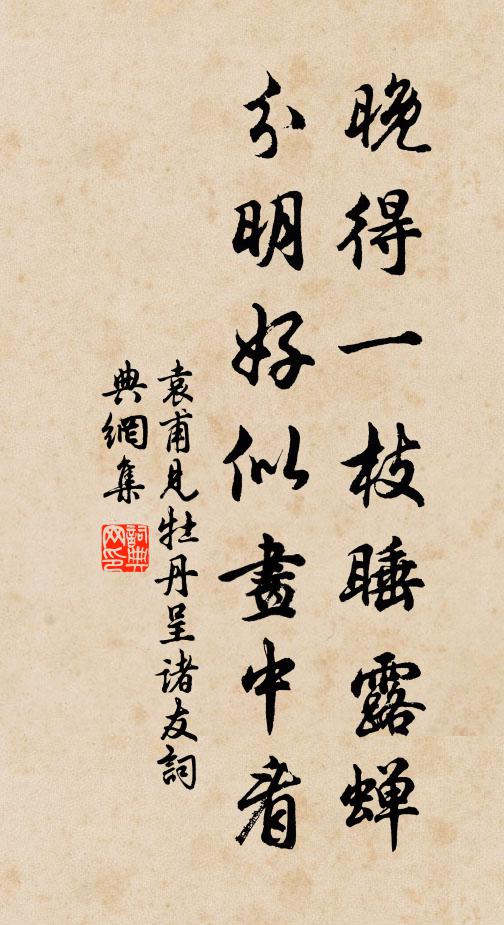 晚得一枝睡露蝉
分明好似畫中看
袁甫見牡丹呈诸友詞
典網集
詞典
网印